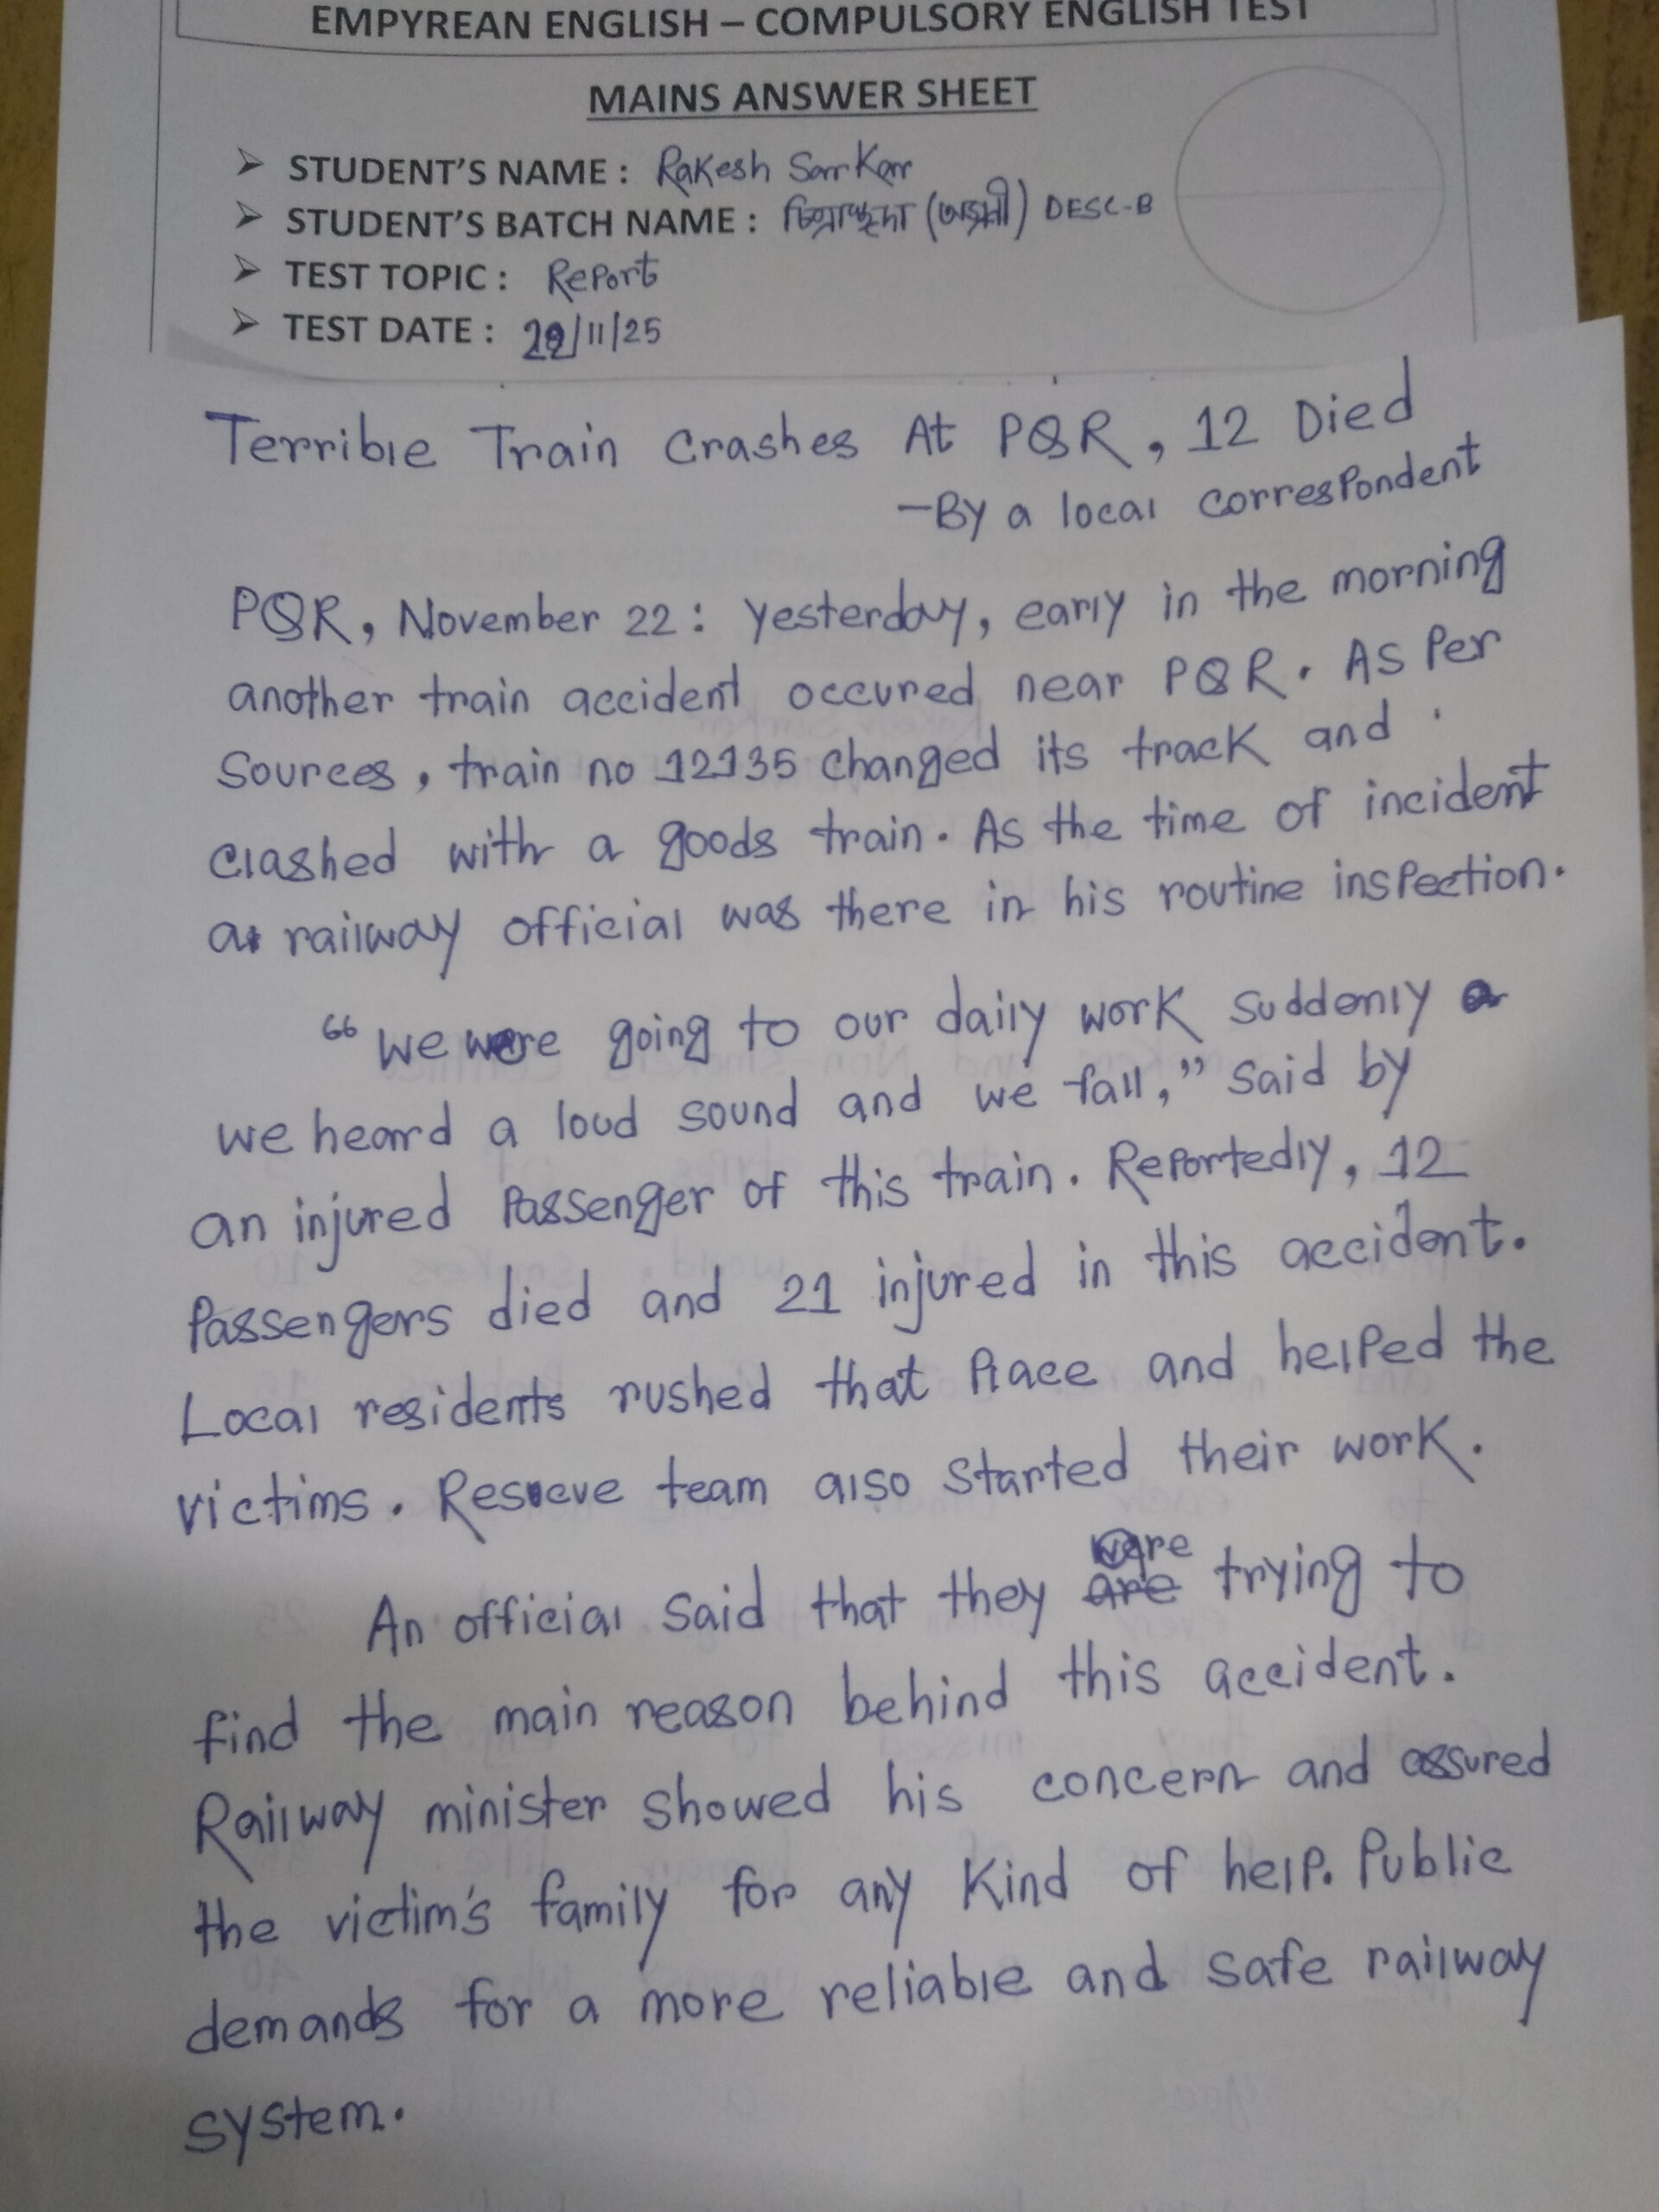 EMPYREAN ENGLISH – COMPULSORY ENGLISH TEST
MAINS ANSWER SHEET
➢ STUDENT'S NAME : Rakesh Sarkar
➢ STUDENT'S BATCH NAME : DESC-B
➢ TEST TOPIC : Report
➢ TEST DATE : /11/25
Terrible Train Crashes At PQR, 12 Died
–By a local correspondent
PQR, November 22: Yesterday, early in the morning
another train accident occured near PQR. As Per
Sources, train no 12135 changed its track and
clashed with a goods train. As the time of incident
a railway official was there in his routine inspection.
"We were going to our daily work suddenly
we heard a loud sound and we fall," said by
an injured Passenger of this train. Reportedly, 12
Passengers died and 21 injured in this accident.
Local residents rushed that Place and helped the
victims. Rescue team also started their work.
An official said that they are were trying to
find the main reason behind this accident.
Railway minister showed his concern and assured
the victim's family for any kind of help. Public
demands for a more reliable and safe railway
system.